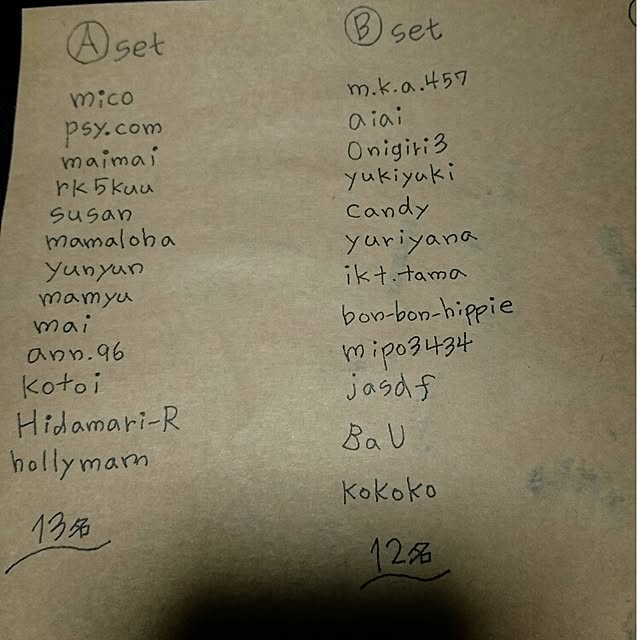 Ⓐ set
mico
psy.com
maimai
rk5kuu
susan
mamaloha
yunyun
mamyu
mai
ann.96
kotoi
Hidamari-R
hollymam
13名
Ⓑ set
m.k.a.457
aiai
Onigiri3
yukiyuki
candy
yuriyana
ikt.tama
bon-bon-hippie
mipo3434
jasdf
BaU
kokoko
12名